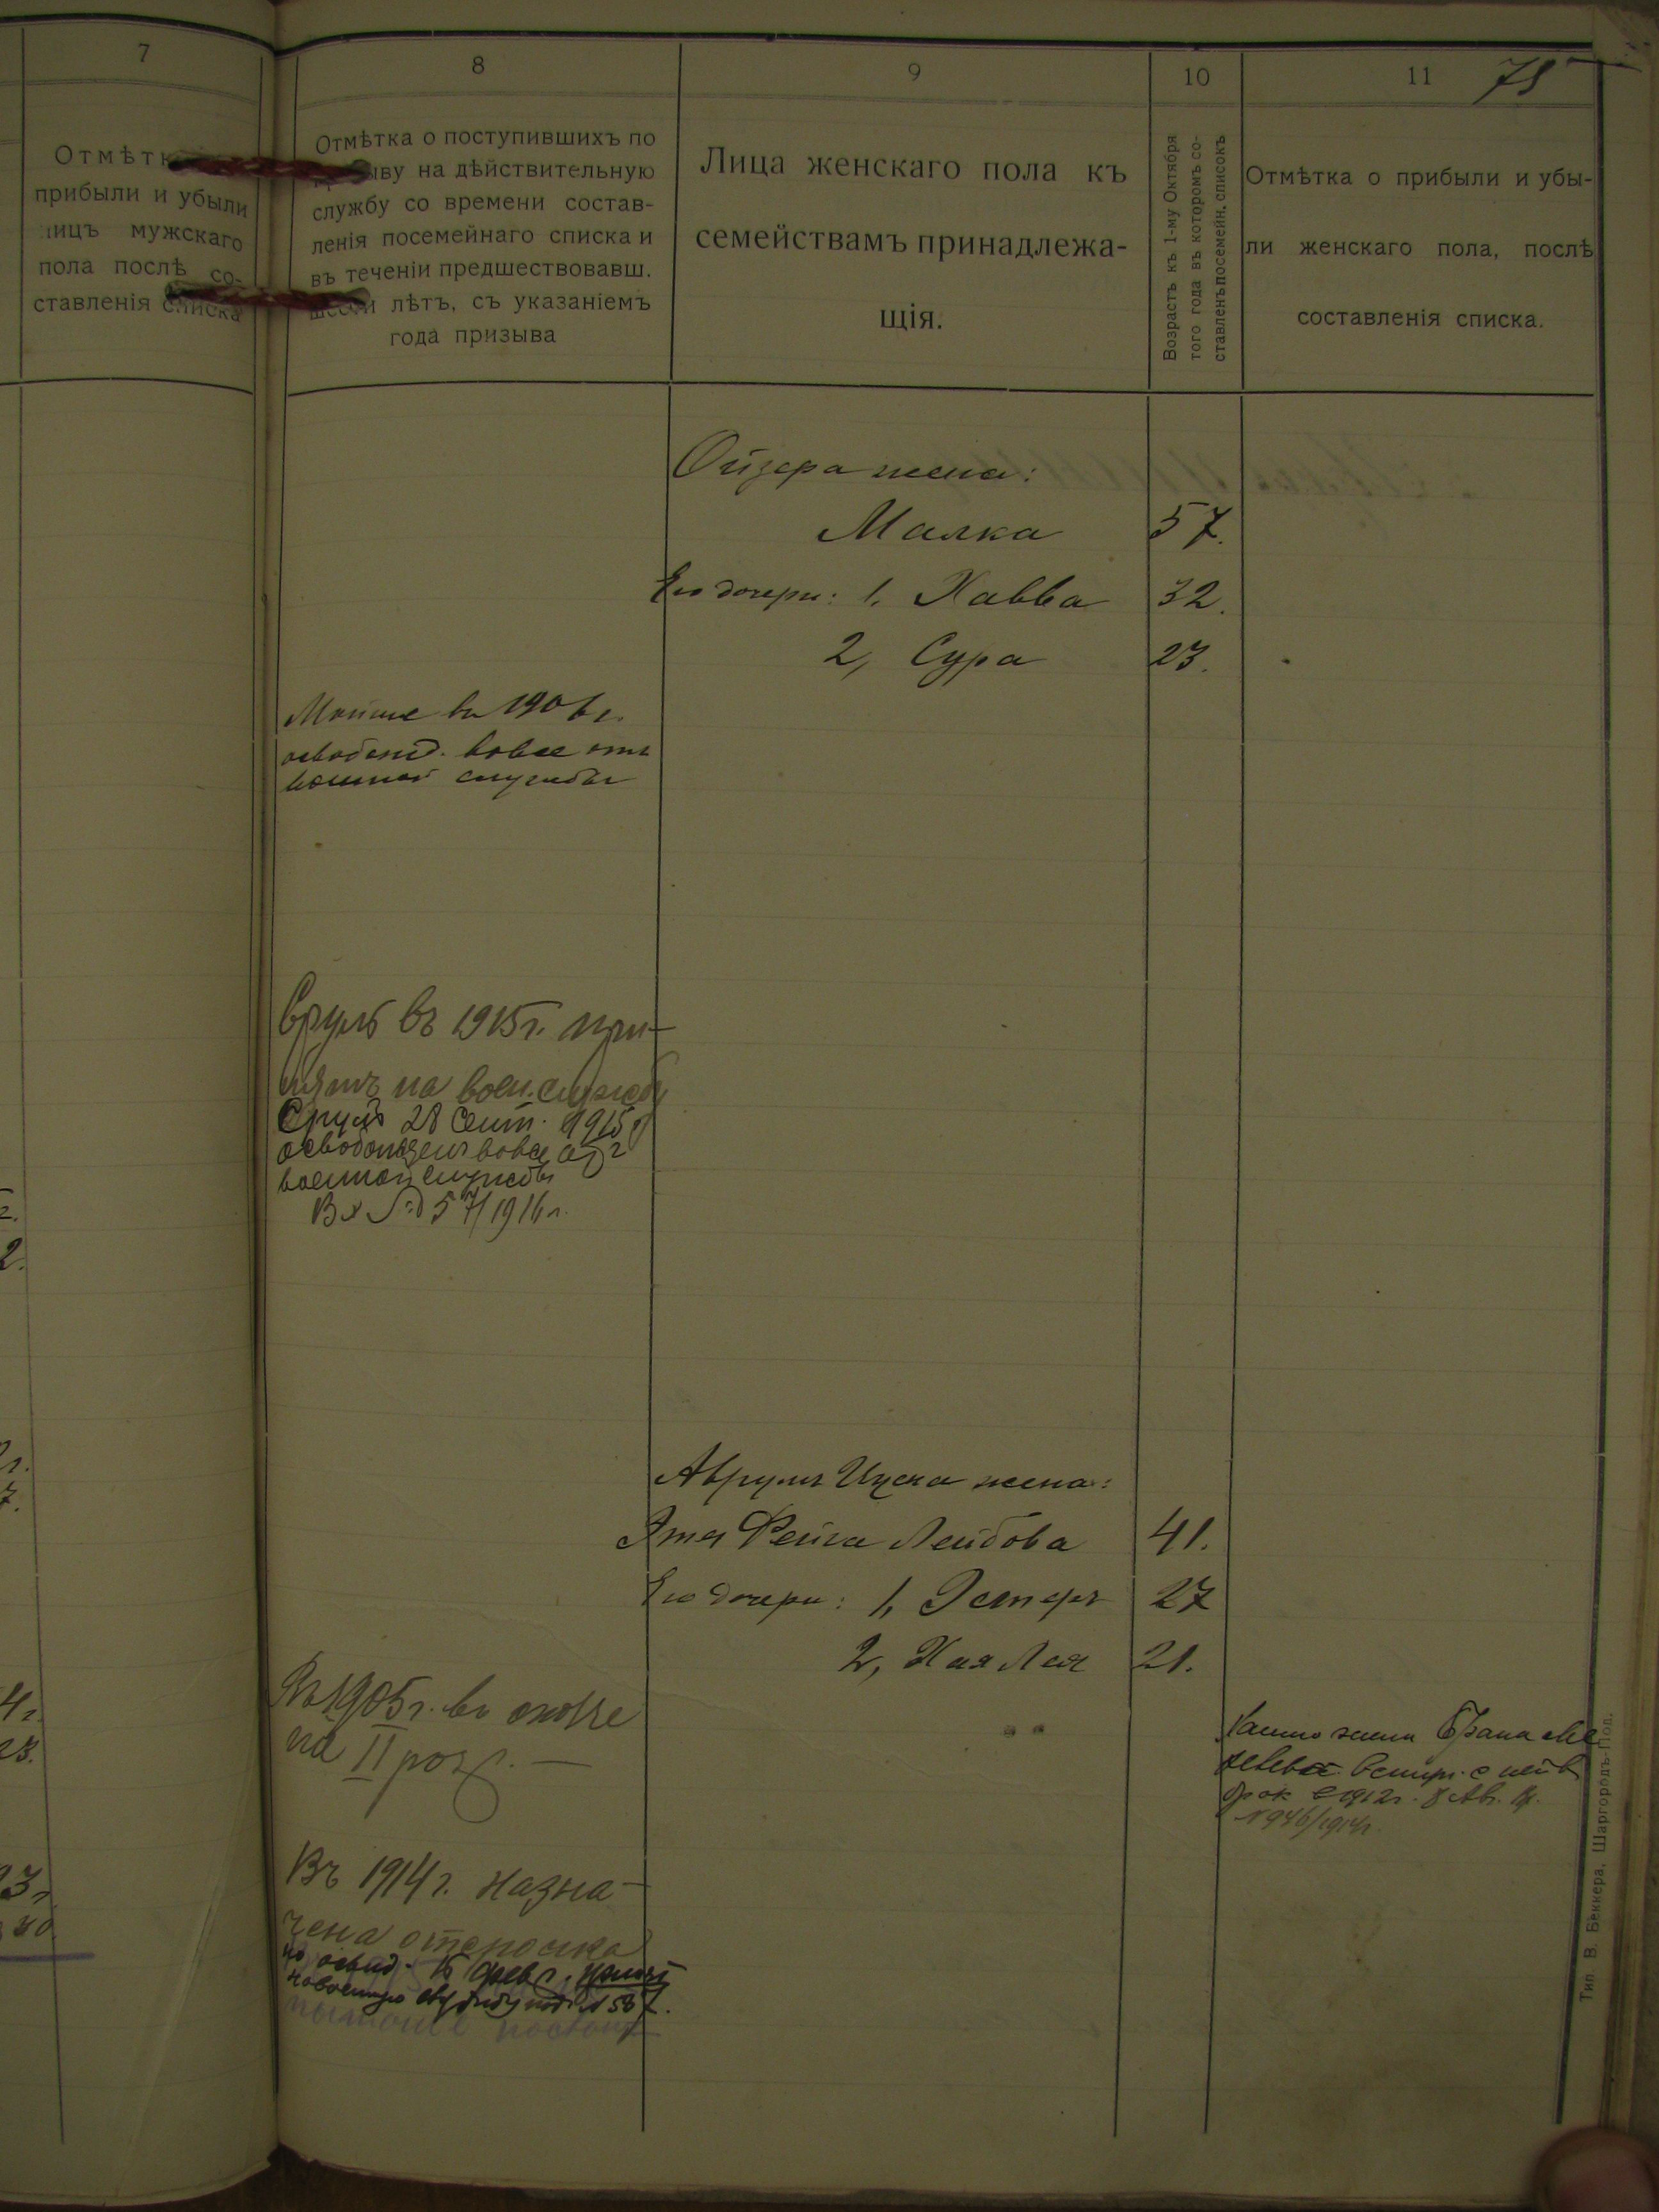 7
8
9
10
11
75
Отмѣтк
прибыли и убыли
лицъ мужскаго
пола послѣ со-
ставленія списка
Отмѣтка о поступившихъ по
ыву на дѣйствительную
службу со времени состав-
ленія посемейнаго списка и
въ теченіи предшествовавш.
шести лѣтъ, съ указаніемъ
года призыва
Лица женскаго пола къ
семействамъ принадлежа-
щія.
Возрастъ къ 1-му Октября
того года въ которомъ со-
ставленъ посемейн. списокъ
Отмѣтка о прибыли и убы-
ли женскаго пола, послѣ
составленія списка.
Ойзера жена:
Малка 57.
Его дочери: 1, Хавва 32.
2, Сура 23.
въ 1906 г.
освобожд. вовсе отъ
военной службы
Сруль въ 1915 г. при-
нятъ на воен. службу
Сруль 28 Сент. 1915 г
освобожденъ вовсе отъ
военной службы
Вх № 57/1916 г.
Аврумъ Ицека жена:
Этя Фейга Лейбова 41.
Его дочери: 1, Эстеръ 27
2, Хая Лея 21.
Въ 1905 г. въ
на II розр. —
жена Брана
1912 г. 8 Ав.
№ 946/1914 г.
Въ 1914 г. назна-
чена отсрочка
по освид. 16 февр.
на военную службу 587.
Тип. В. Беккера, Шаргородъ-Под.